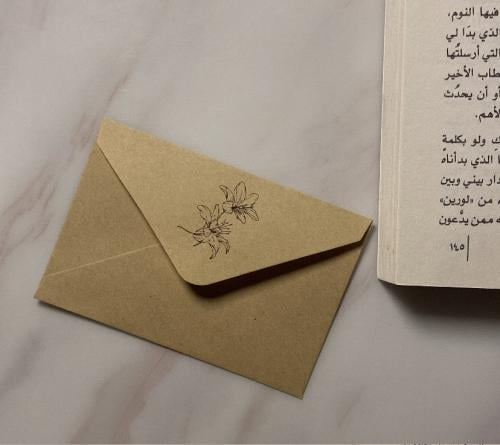 فيها النوم،
الذي بدَا لي
التي أرسلتُها
طاب الأخير
أو أن يحدُث
لأهم.
ولو بكلمة
الذي بدأناه
دار بيني وبين
من «لورين»
ممن يدَّعون
١٤٥